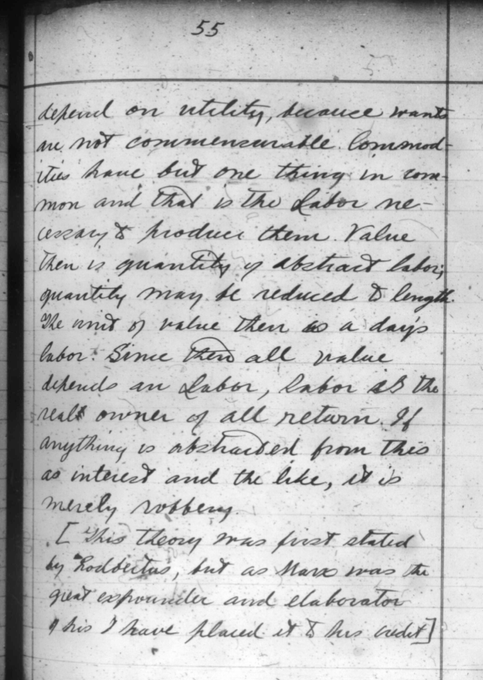 55
depend on utility, because wants
are not commensurable. Commod-
ities have but one thing in com-
mon and that is the Labor ne-
cessary to produce them. Value
then is quantity of abstract labor,
quantity may be reduced to length.
The unit of value then is a day's
labor. Since then all value
depends on Labor, labor is the
real owner of all return. If
anything is abstracted from this
as interest and the like, it is
merely robbery.
[This theory was first stated
by Rodbertus, but as Marx was the
great expounder and elaborator
of this I have placed it to his credit]